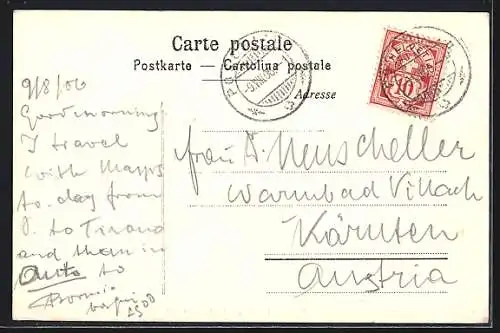 Carte postale
Postkarte — Cartolina postale
Adresse
HELVETIA
10
9/8/06
Goodmorning!
I travel
with
to-day from
to Tirano
and then in
Auto to
Bormio
Frau A. Neuscheller
Warmbad Villach
Kärnten
Austria